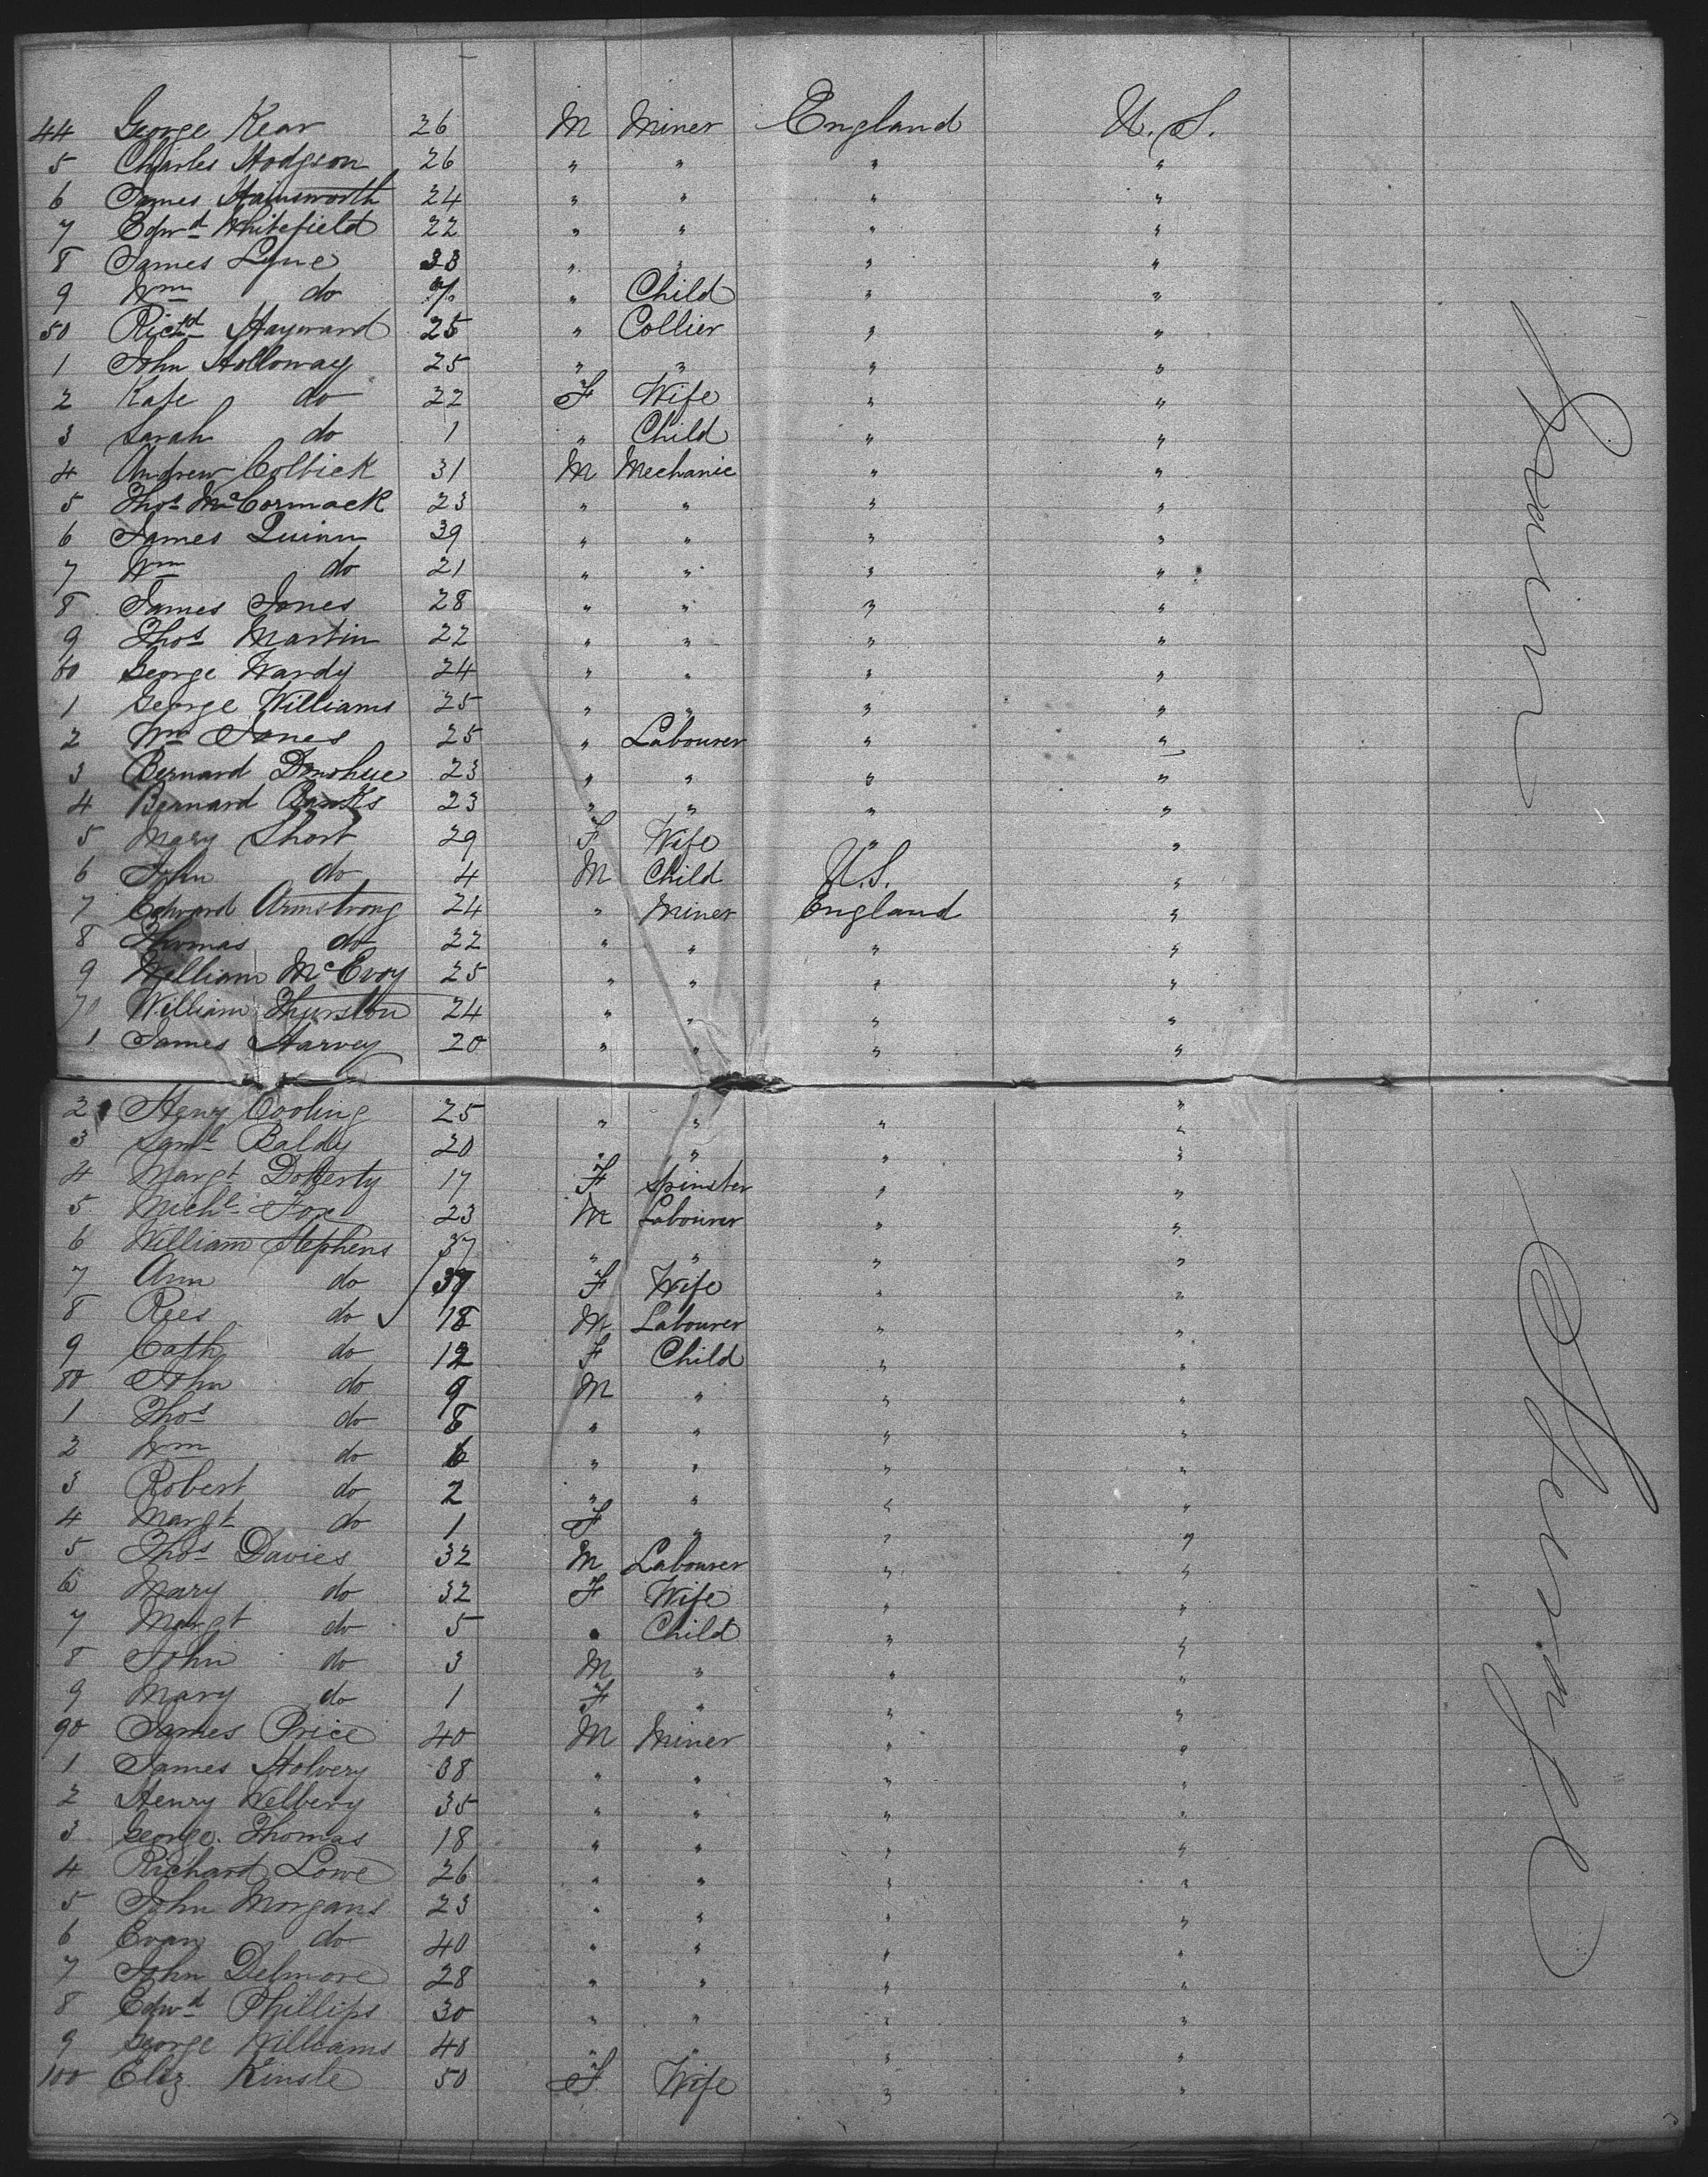 44 George Kear 26 M Miner England U. S.
5 Charles Hodgson 26 " " " "
6 James Hainsworth 24 " " " "
7 Edwd Whitefield 22 " " " "
8 James Lyne 33 " " " "
9 Wm do 7 " Child " "
50 Richd Hayward 25 " Collier " "
1 John Holloway 25 " " " "
2 Kate do 22 F Wife " "
3 Sarah do 1 " Child " "
4 Andrew Colbick 31 M Mechanic " "
5 Thos McCormack 23 " " " "
6 James Quinn 39 " " " "
7 Wm do 21 " " " "
8 James Jones 28 " " " "
9 Thos Martin 22 " " " "
60 George Wardy 24 " " " "
1 George Williams 25 " " " "
2 Wm Jones 25 " Labourer " "
3 Bernard Donohue 23 " " " "
4 Bernard Banks 23 " " " "
5 Mary Short 29 F Wife " "
6 John do 4 M Child U.S. "
7 Edward Armstrong 24 " Miner England "
8 Thomas do 22 " " " "
9 William McEvoy 25 " " " "
70 William Thurston 24 " " " "
1 James Harvey 20 " " " "
2 Henry Cooling 25 " " " "
3 Saml Baldy 20 " " " "
4 Margt Doherty 17 F Spinster " "
5 Michl Fox 23 M Labourer " "
6 William Stephens 37 " " " "
7 Ann do 37 F Wife " "
8 Rees do 18 M Labourer " "
9 Cath do 12 F Child " "
80 John do 9 M " " "
1 Thos do 8 " " " "
2 Wm do 6 " " " "
3 Robert do 2 " " " "
4 Margt do 1 F " " "
5 Thos Davies 32 M Labourer " "
6 Mary do 32 F Wife " "
7 Margt do 5 " Child " "
8 John do 3 M " " "
9 Mary do 1 F " " "
90 James Price 40 M Miner " "
1 James Holvery 38 " " " "
2 Henry Welbery 35 " " " "
3 George Thomas 18 " " " "
4 Richard Lowe 26 " " " "
5 John Morgans 23 " " " "
6 Evan do 40 " " " "
7 John Delmore 28 " " " "
8 Edwd Phillips 30 " " " "
9 George Williams 40 " " " "
100 Eliz Kinsle 50 F Wife " "